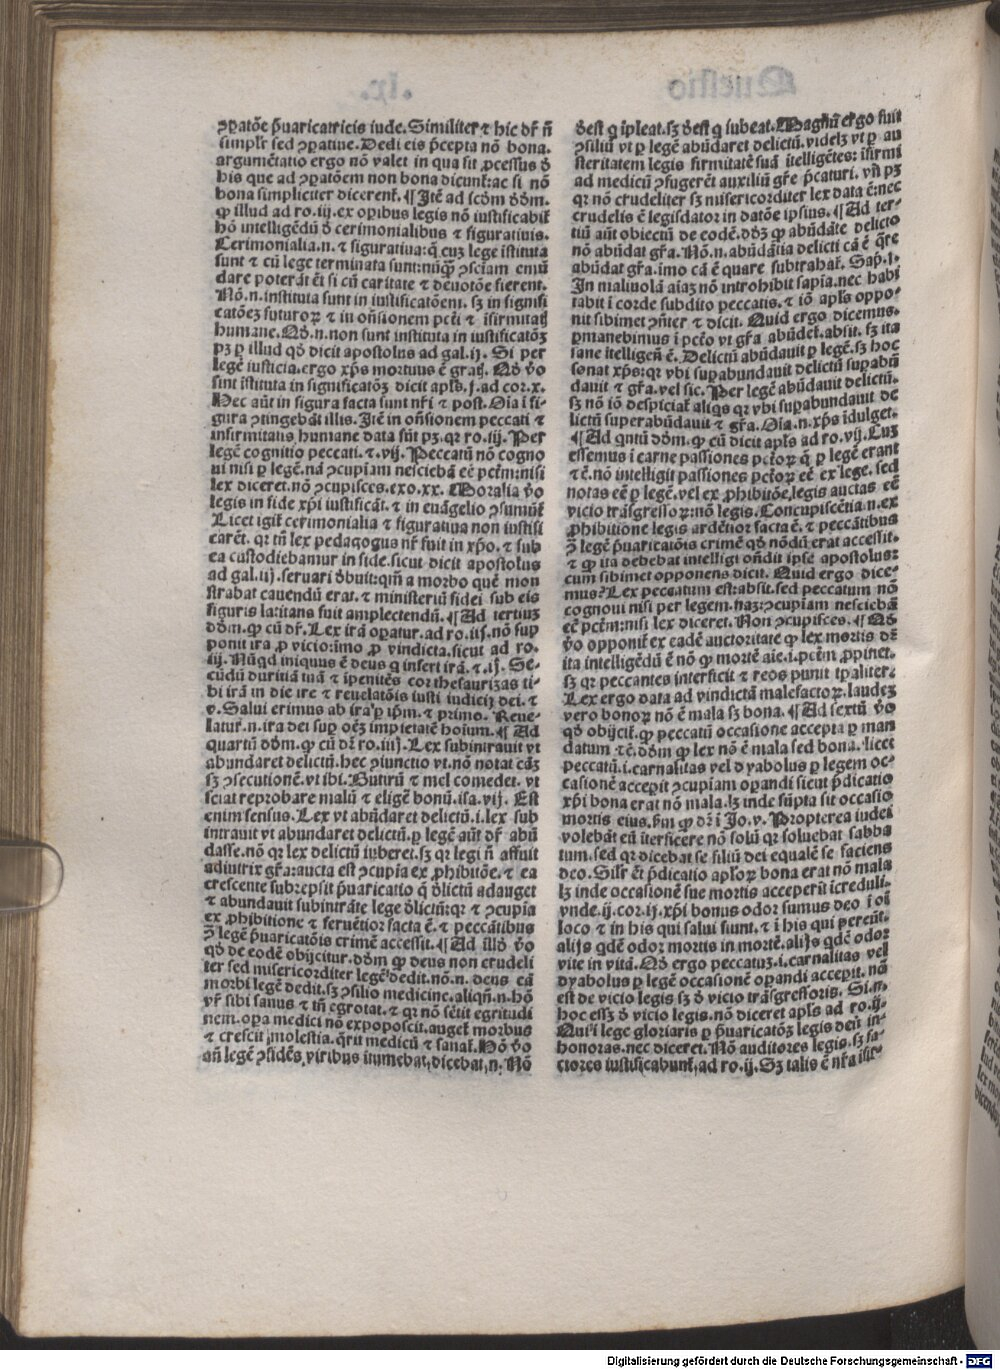 ꝯꝑatōe p̄uaricatricis iude. Similiter ⁊ hic dr̄ ñ
simplr̄ sed ꝯꝑatiue. Dedi eis p̄cepta nō bona.
argumētatio ergo nō valet in qua fit ꝓcessus ð
his que ad ꝯꝑatōem non bona dicunt᷑: ac si nō
bona simpliciter dicerent᷑. ¶ Itē ad scd̄m dd̄m.
ꝙ illud ad ro. iij. ex oꝑibus legis nō iustificabit᷑
hō intelligēdū ð cerimonialibus ⁊ figuratiuis.
Cerimonialia. n. ⁊ figuratiua: q̄ cuꝫ lege īstituta
sunt ⁊ cū lege terminata sunt: nūꝙ̄ ꝯsciam emū
dare poterāt ēt si cū caritate ⁊ deuotōe fierent.
Nō. n. instituta sunt in iustificatōem. sꝫ in signifi
catōeꝫ futuroꝝ ⁊ in oñsionem pcti ⁊ īfirmitatꝭ
humane. Qð. n. non sunt instituta in iustificatōꝫ
pꝫ ꝑ illud qð dicit apostolus ad gal. ij. Si per
legē iusticia. ergo xp̄s mortuus ē gratꝭ. Qð v̊o
sint īstituta in significatōꝫ dicit apl̄s. j. ad cor. x.
Hec aūt in figura facta sunt nr̄i ⁊ post. Oīa ī fi-
gura ꝯtingebāt illis. Itē in oñsionem peccati ⁊
infirmitatis humane data sūt pꝫ. qꝛ ro. iij. Per
legē cognitio peccati. ⁊. vij. Peccatū nō cogno
ui nisi ꝑ legē. nā ꝯcupiam nesciebā eē pctm̄: nisi
lex diceret. nō ꝯcupisces. exo. xx. Moralia v̊o
legis in fide xp̄i iustificāt. ⁊ in euāgelio ꝯsumūt᷑
Licet igit᷑ cerimonialia ⁊ figuratiua non iustifi
carēt. qꝛ tn̄ lex pedagogus nr̄ fuit in xp̄o. ⁊ sub
ea custodiebamur in fide. sicut dicit apostolus
ad gal. iij. seruari ðbuit: qm̄ a morbo quē mon
strabat cauendū erat. ⁊ ministeriū fidei sub eis
figuris latitans fuit amplectendū. ¶ Ad tertiuꝫ
dd̄m. ꝙ cū dr̄. Lex irā oꝑatur. ad ro. iij. nō sup
ponit ira ꝓ vicio: imo ꝓ vindicta. sicut ad ro.
iij. Nūqd iniquus ē deus q infert irā. ⁊. ij. Se-
cūdū duritiā tuā ⁊ īpenitēs cor thesaurizas ti-
bi irā in die ire ⁊ reuelatōis iusti iudicij dei. ⁊
v. Salui erimus ab ira ꝑ ip̄m. ⁊ primo. Reue-
latur. n. ira dei suꝑ oēꝫ impietatē hoīum. ¶ Ad
quartū dd̄m. ꝙ cū dr̄ ro. iiij. Lex subintrauit vt
abundaret delictū. hec ꝯiunctio vt. nō notat cāꝫ
sꝫ ꝯsecutionē. vt ibi. Butirū ⁊ mel comedet. vt
sciat reprobare malū ⁊ eligē bonū. isa. vij. Est
enim sensus. Lex vt abūdaret delictū. i. lex sub
intrauit vt abundaret delictū. ꝑ legē aūt dr̄ abū
dasse. nō qꝛ lex delictū iuberet. sꝫ qꝛ legi ñ affuit
adiutrix gr̄a: aucta est ꝯcupīa ex ꝓhibitiōe. ⁊ ea
crescente subrepsit p̄uaricatio q̄ ðlictū adauget
⁊ abundauit subintrāte lege ðlictū: qꝛ ⁊ ꝯcupīa
ex ꝓhibitione ⁊ feruētior facta ē. ⁊ peccātibus
ꝯ̄ legē p̄uaricatōis crimē accessit. ¶ Ad illð v̊o
qð de eodē obijcitur. dd̄m ꝙ deus non crudeli
ter sed misericorditer legē dedit. nō. n. deus cā
morbi legē dedit. sꝫ ꝯsilio medicine. aliqn̄. n. hō
vr̄ sibi sanus ⁊ tn̄ egrotat. ⁊ qꝛ nō sētit egritudi
nem. opa medici nō expoposcit. auget᷑ morbus
⁊ crescit molestia. q̄rit medicū ⁊ sanat᷑. Hō v̊o
añ legē ꝯsidēs. viribus itumebat. dicebat. n. Nō
ðest q īpleat. sꝫ ðest q iubeat. Magnū ergo fuit
ꝯsiliū vt ꝑ legē abūdaret delictū. videlꝫ vt ꝑ au
steritatem legis firmitatē suā ītelligētes: īfirmi
ad medicū ꝯfugerēt auxiliū gr̄e p̄caturi. vn̄ pꝫ
qꝛ nō crudeliter sꝫ misericorditer lex data ē: nec
crudelis ē legisdator in datōe ipsius. ¶ Ad ter-
tiū aūt obiectū de eodē. ddꝫ ꝙ abūdāte delicto
nō abūdat gr̄a. Nō. n. abūdātia delicti cā ē q̄re
abūdat gr̄a. imo cā ē quare subtrahat᷑. Sap. i.
In maliuolā aīaꝫ nō introhibit sapīa. nec habi
tabit ī corde subdito peccatis. ⁊ iō apl̄s oppo-
nit sibimet ꝯñter ⁊ dicit. Quid ergo dicemus.
ꝑmanebimus ī pctō vt gr̄a abūdet᷑. absit. sꝫ ita
sane ītelligen̄ ē. Delictū abūdauit ꝑ legē. sꝫ hoc
sonat xp̄s: qꝛ vbi suꝑabundauit delictū suꝑabū
dauit ⁊ gr̄a. vel sic. Per legē abūdauit delictū.
sꝫ nō iō despiciat᷑ aliqs qꝛ vbi suꝑabundauit de
lictū superabūdauit ⁊ gr̄a. Oīa. n. xp̄s īdulget.
¶ Ad qntū dd̄m. ꝙ cū dicit apl̄s ad ro. vij. Cuꝫ
essemus ī carne passiones pctōꝝ q̄ ꝑ legē erant
⁊ē. nō intelligit passiones pctōꝝ eē ex lege. sed
notas eē ꝑ legē. vel ex ꝓhibitiōe legis auctas eē
vicio trāsgressoꝝ: nō legis. Concupiscētia. n. ex
ꝓhibitione legis ardētior facta ē. ⁊ peccātibus
ꝯ̄ legē p̄uaricatōis crimē qð nōdū erat accessit.
⁊ ꝙ ita debebat intelligi oñdit ipse apostolus:
cum sibimet opponens dicit. Quid ergo dice-
mus? Lex peccatum est: absit. sed peccatum nō
cognoui nisi per legem. naꝫ: ꝯcupīam nesciebā
eē pctm̄: nisi lex diceret. Non ꝯcupisces. ¶ Qð
v̊o opponit᷑ ex eadē auctoritate ꝙ lex mortis dr̄
ita intelligēdū ē nō ꝙ mortē aīe. i. pctm̄ ꝓpinet.
sꝫ qꝛ peccantes interficit ⁊ reos punit tꝑaliter.
Lex ergo data ad vindictā malefactoꝝ. laudeꝫ
vero bonoꝝ nō ē mala sꝫ bona. ¶ Ad sextū v̊o
qð obijcit᷑. ꝙ peccatū occasione accepta ꝑ man
datum ⁊ē. dd̄m ꝙ lex nō ē mala sed bona. licet
peccatū. i. carnalitas vel dyabolus ꝑ legem oc-
casionē accepit ꝯcupīam oꝑandi sicut p̄dicatio
xp̄i bona erat nō mala. lꝫ inde sūpta sit occasio
mortis eius. ẜm ꝙ dr̄ ī Jo. v. Propterea iudei
volebāt eū īterficere nō solū qꝛ soluebat sabba
tum. sed qꝛ dicebat se filiū dei equalē se faciens
deo. Silr̄ ēt p̄dicatio apl̄oꝝ bona erat nō mala
lꝫ inde occasionē sue mortis acceperīt īcreduli.
vnde. ij. cor. ij. xp̄i bonus odor sumus deo ī oī
loco ⁊ in his qui salui fiunt. ⁊ ī his qui pereūt.
alijs qdē odor mortis in mortē. alijs qdē odor
vite in vitā. Qð ergo peccatuꝫ. i. carnalitas vel
dyabolus ꝑ legē occasionē oꝑandi accepit. nō
est de vicio legis sꝫ ð vicio trāsgressoris. Si. n.
hoc essꝫ ð vicio legis. nō diceret apl̄s ad ro. ij.
Qui ī lege gloriaris ꝑ p̄uaricatōꝫ legis deū in-
honoras. nec diceret. Nō auditores legis. sꝫ fa-
ctores iustificabunt᷑. ad ro. ij. Sꝫ talis ē nr̄a īfir-
Digitalisierung gefördert durch die Deutsche Forschungsgemeinschaft - DFG